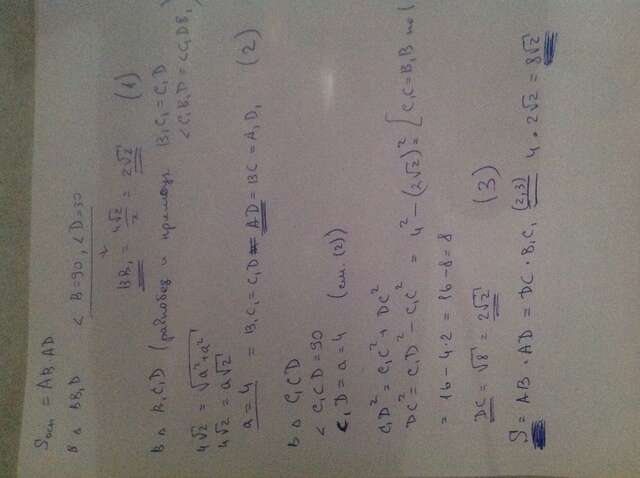 Sосн = AB·AD
В △ BB₁D   < B=90, <D=30
BB₁ = 4√2/2 = 2√2   (1)
В △ B₁C₁D (равнобед и прямоуг   B₁C₁=C₁D
<C₁B₁D=<C₁DB₁)
4√2 = √a²+a²
4√2 = a√2
a=4 = B₁C₁=C₁D AD=BC=A₁D₁   (2)
В △ C₁CD
< C₁CD=90
C₁D=a=4   (см. (2))
C₁D²=C₁C²+DC²
DC²=C₁D²−C₁C² = 4²−(2√2)²= [C₁C=B₁B по
= 16−4·2=16−8=8
DC=√8=2√2   (3)
S=AB·AD=DC·B₁C₁ (2,3) 4·2√2=8√2